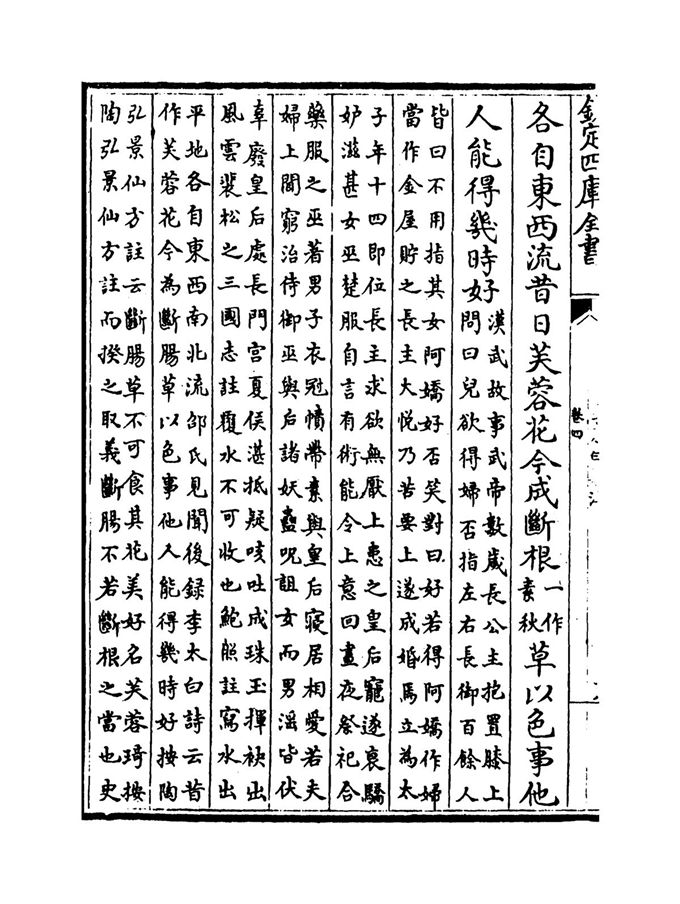 欽定四庫全書
卷四
各自東西流昔日芙蓉花今成斷根一作素秋草以色事他
人能得幾時好漢武故事武帝數嵗長公主抱置膝上
問曰兒欲得婦否指左右長御百餘人
皆曰不用指其女阿嬌好否笑對曰好若得阿嬌作婦
當作金屋貯之長主大悦乃苦要上遂成婚焉立為太
子年十四即位長主求欲無厭上患之皇后寵遂衰驕
妒滋甚女巫楚服自言有術能令上意回晝夜祭祀合
藥服之巫著男子衣冠幘帶素與皇后寢居相愛若夫
婦上聞窮治侍御巫與后諸妖蠱呪詛女而男滛皆伏
辜廢皇后處長門宫夏侯湛抵疑咳吐成珠玉揮袂出
風雲裴松之三國志註覆水不可收也鮑照註寫水出
平地各自東西南北流邵氏見聞後録李太白詩云昔
作芙蓉花今為斷腸草以色事他人能得幾時好按陶
弘景仙方註云斷腸草不可食其花美好名芙蓉琦按
陶弘景仙方註而揆之取義斷腸不若斷根之當也史